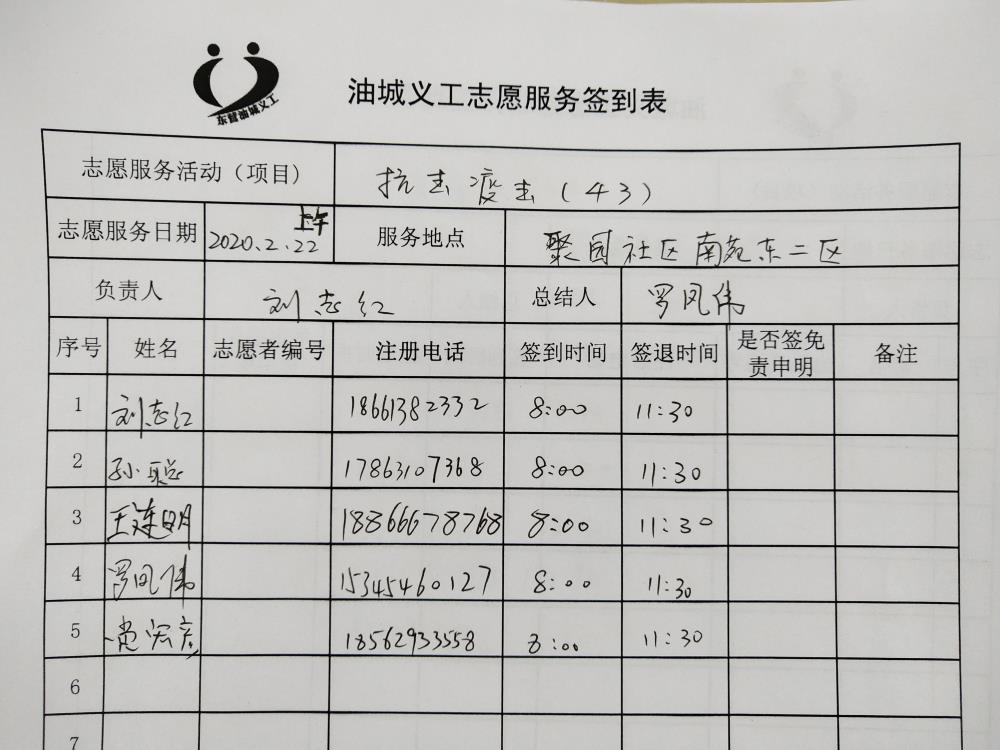 东营油城义工
油城义工志愿服务签到表
志愿服务活动（项目） 抗击疫击（43）
志愿服务日期 2020.2.22 上午 服务地点 聚园社区南苑东二区
负责人 刘志红 总结人 罗凤伟
序号 姓名 志愿者编号 注册电话 签到时间 签退时间 是否签免责申明 备注
1 刘志红 18661382332 8:00 11:30
2 孙聪 17863107368 8:00 11:30
3 王连明 18866678768 8:00 11:30
4 罗凤伟 15345460127 8:00 11:30
5 18562933558 8:00 11:30
6
7